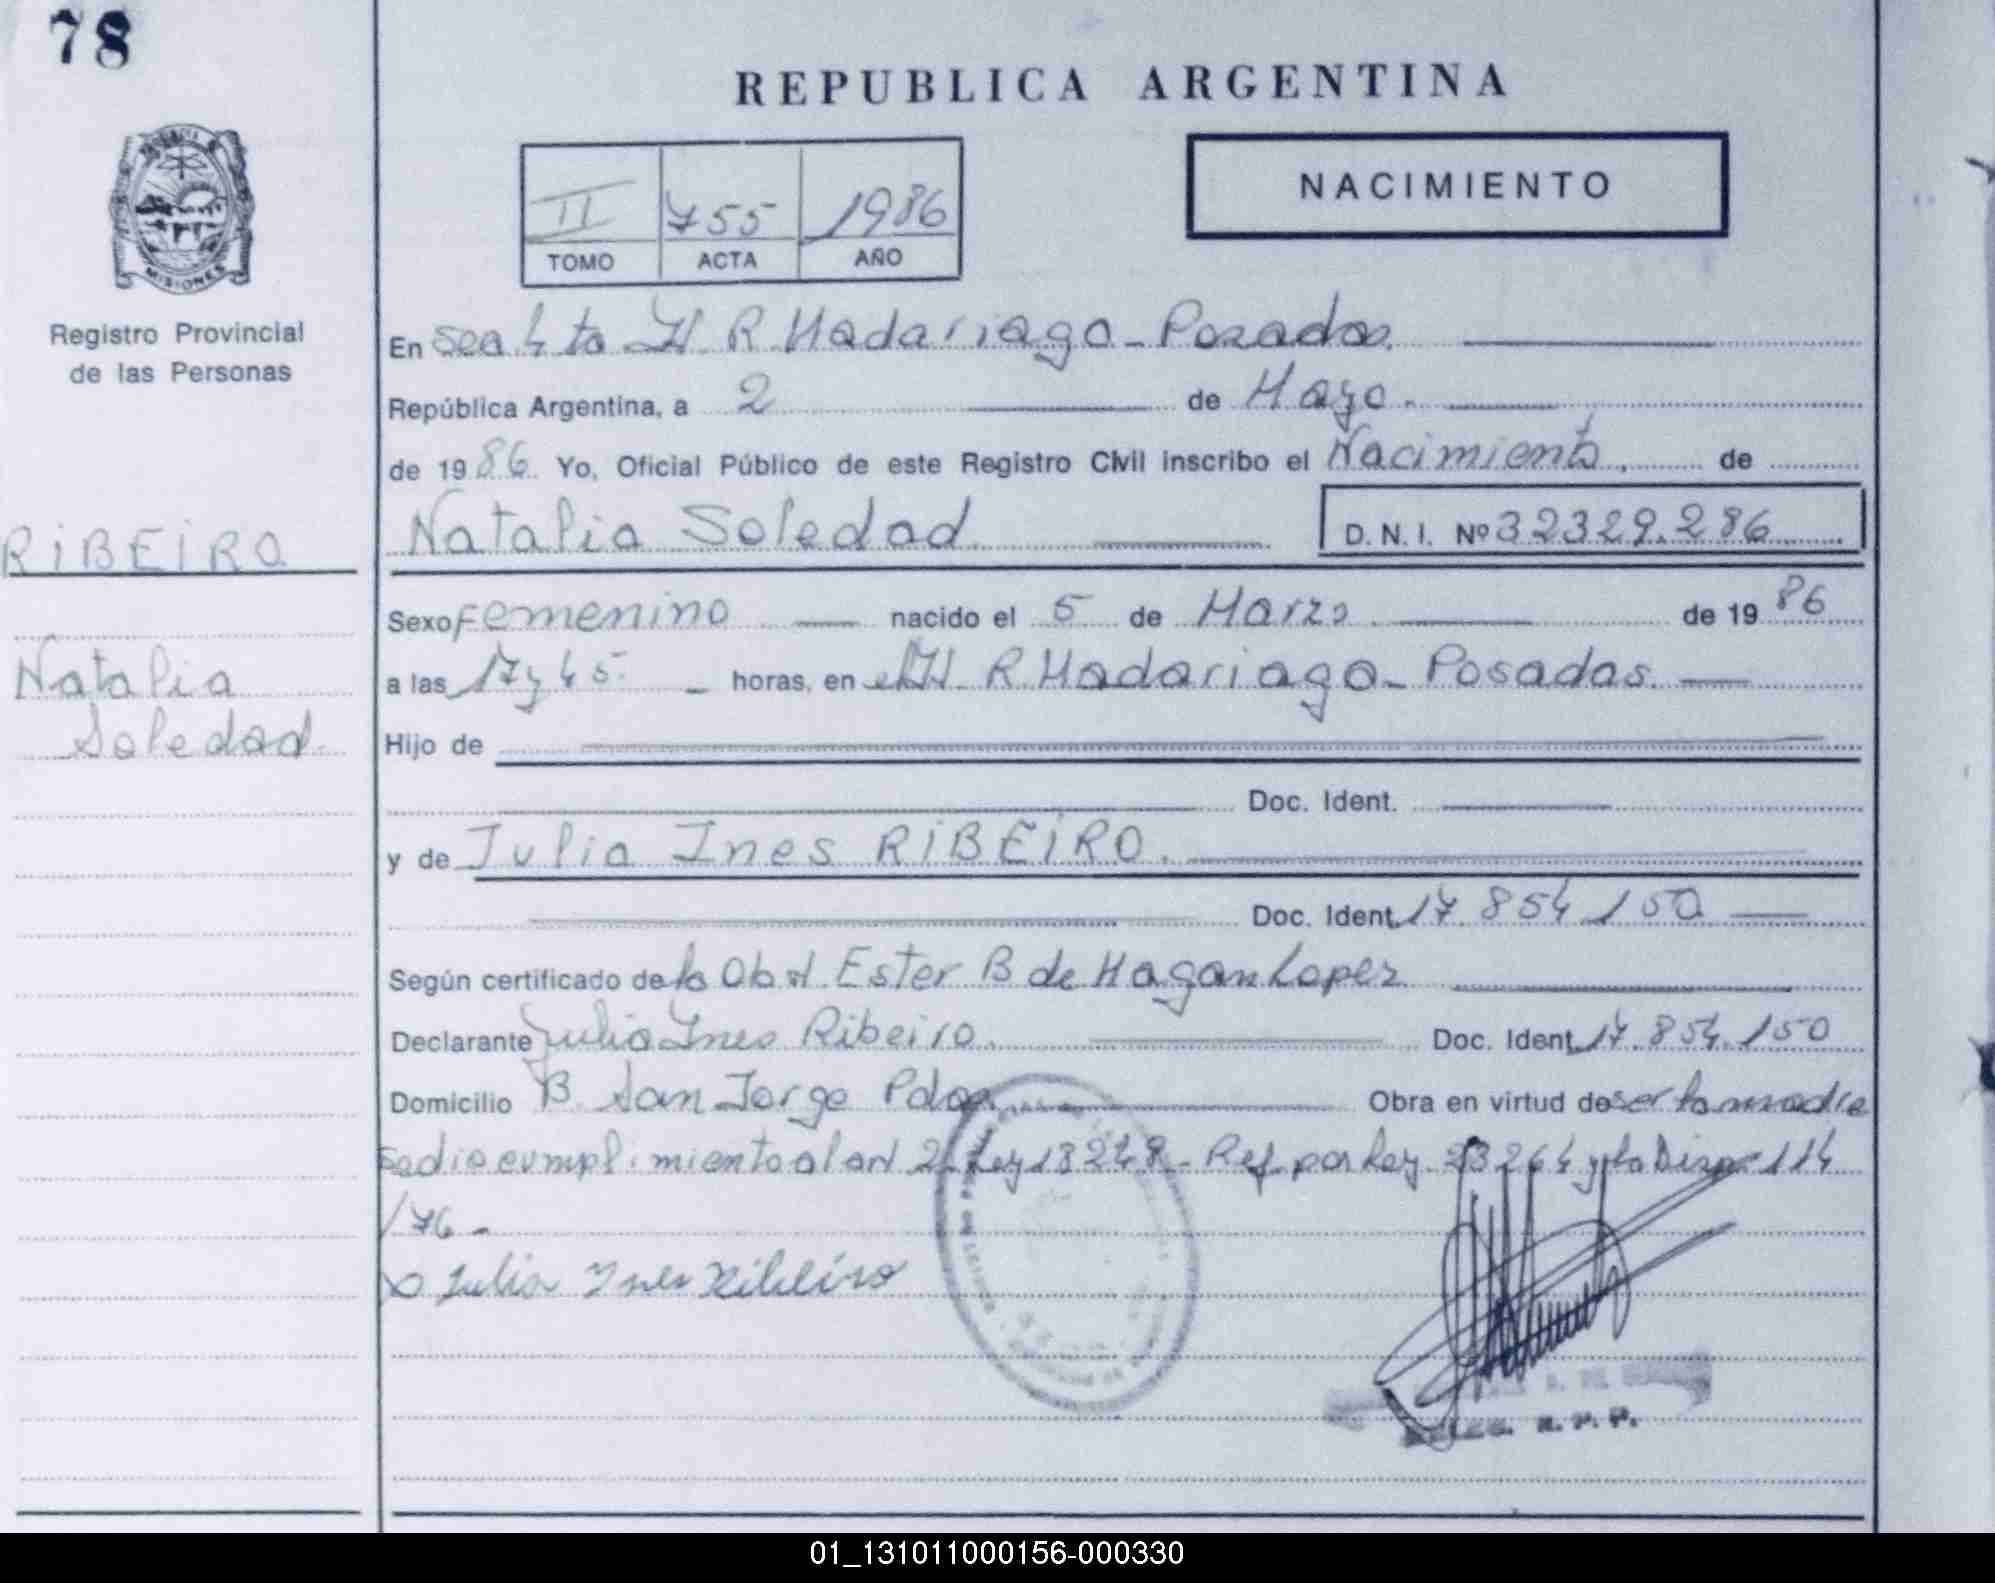 78
REPUBLICA ARGENTINA
NACIMIENTO
II 755 1986
TOMO ACTA AÑO
MISIONES
Registro Provincial
de las Personas
RIBEIRO
Natalia
Soledad.
En secc 4 ta H. R Madariaga - Posadas.
República Argentina, a 2 de Mayo.
de 1986. Yo, Oficial Público de este Registro Civil inscribo el Nacimiento. de
Natalia Soledad D. N. I. Nº 32329.286
Sexo Femenino nacido el 5 de Marzo de 1986
a las 17y45. horas, en el H. R Madariaga - Posadas.
Hijo de
Doc. Ident.
y de Julia Ines RIBEIRO.
Doc. Ident. 17.854.150
Según certificado de la Obst. Ester B de Lopez
Declarante Julia Ines Ribeiro. Doc. Ident. 17.854.150
Domicilio B. San Jorge Pdas. Obra en virtud de ser la madre
se dio cumplimiento al art 2. Ley 18248 - Ref. por Ley 23264 y la Disp. 114
/76 -
Julia Ines Ribeiro
R. P. P.
01_131011000156-000330